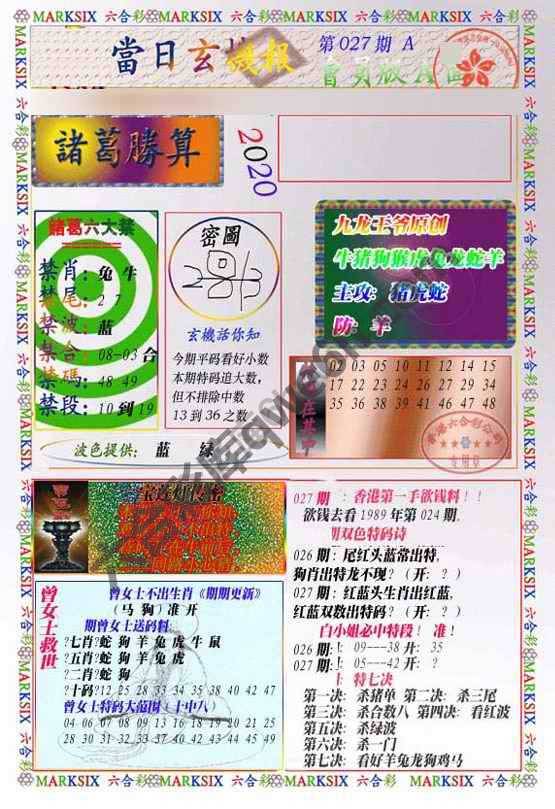 MARKSIX 六合彩 MARKSIX 六合彩 MARKSIX 六合彩 MARKSIX 六合彩
當日玄機報
第027期 A
會員版
諸葛勝算
2020
諸葛六大禁
禁肖：兔 牛
禁尾：2 7
禁波：蓝
禁合：08-03 合
禁碼：48 49
禁段：10 到 19
密圖
玄機話你知
今期平码看好小数
本期特码追大数,
但不排除中数
13 到 36 之数
波色提供： 蓝 绿
九龙王爷原创
牛猪狗猴虎兔龙蛇羊
主攻: 猪虎蛇
防: 羊
02 03 05 10 11 12 14 15
17 22 23 24 26 27 31 34
35 38 39 41 46 47 48
027 期 : 香港第一手欲钱料！！
欲钱去看 1989 年第 024 期.
期双色特码诗
026 期: 尾红头蓝常出特,
狗肖出特龙不现? (开: ? )
027 期: 红蓝头生肖出红蓝,
红蓝双数出特码? (开: ? )
白小姐必中特段！ 准！
026 期: 上 09---38 开: 35
027 期: 上 05---42 开: ?
特七决
第一决: 杀猪单 第二决: 杀三尾
第三决: 杀合数八 第四决: 看红波
第五决: 杀绿波
第六决: 杀一门
第七决: 看好羊兔龙狗鸡马
曾女士救世
曾女士不出生肖《期期更新》
(马 狗) 准 开
期曾女士送码料:
?七肖?蛇 狗 羊 兔 虎 牛 鼠
?五肖?蛇 狗 羊 兔 虎
?二肖?蛇 狗
?十码?12 25 28 33 34 35 38 40 42 47
曾女士特码大范围 (十中八)
04 06 07 08 09 13 16 18 19 20 21 25
28 30 31 32 33 37 38 42 43 44 45 49
MARKSIX 六合彩 MARKSIX 六合彩 MARKSIX 六合彩 MARKSIX 六合彩